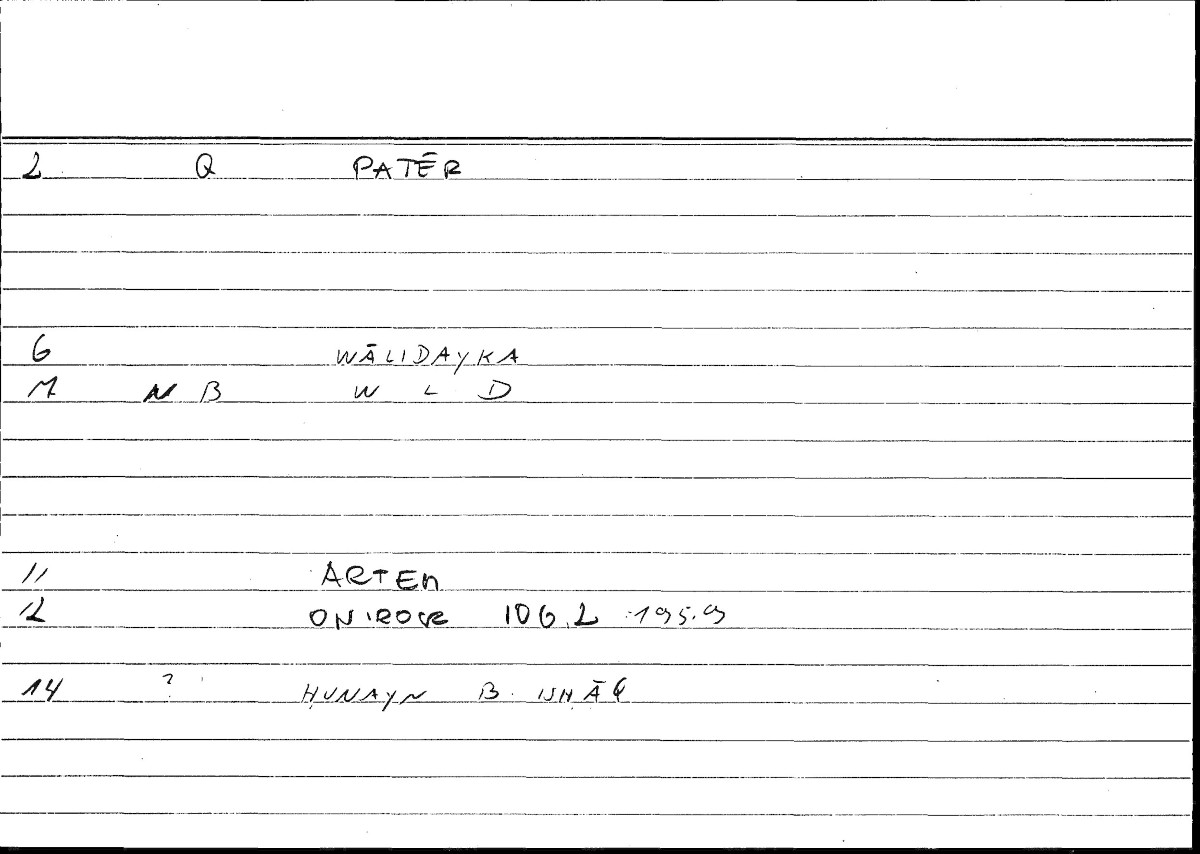 2 Q PATĒR
6 WĀLIDAYKA
7 NB W L D
11 ARTEM
12 ONIROCR 106.2 195.9
14 ? ḤUNAYN B. ISḤĀQ